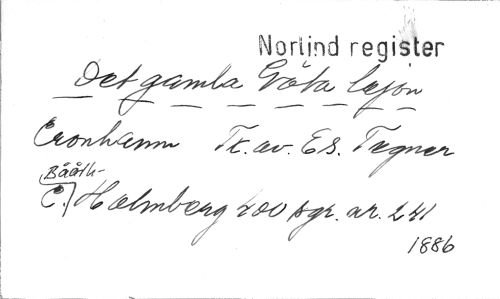 Norlind register
Det gamla Göta lejon
Cronhamn Tx. av. Es. Tegner
Bååth-
C. Holmberg 200 sgr. nr. 241
1886